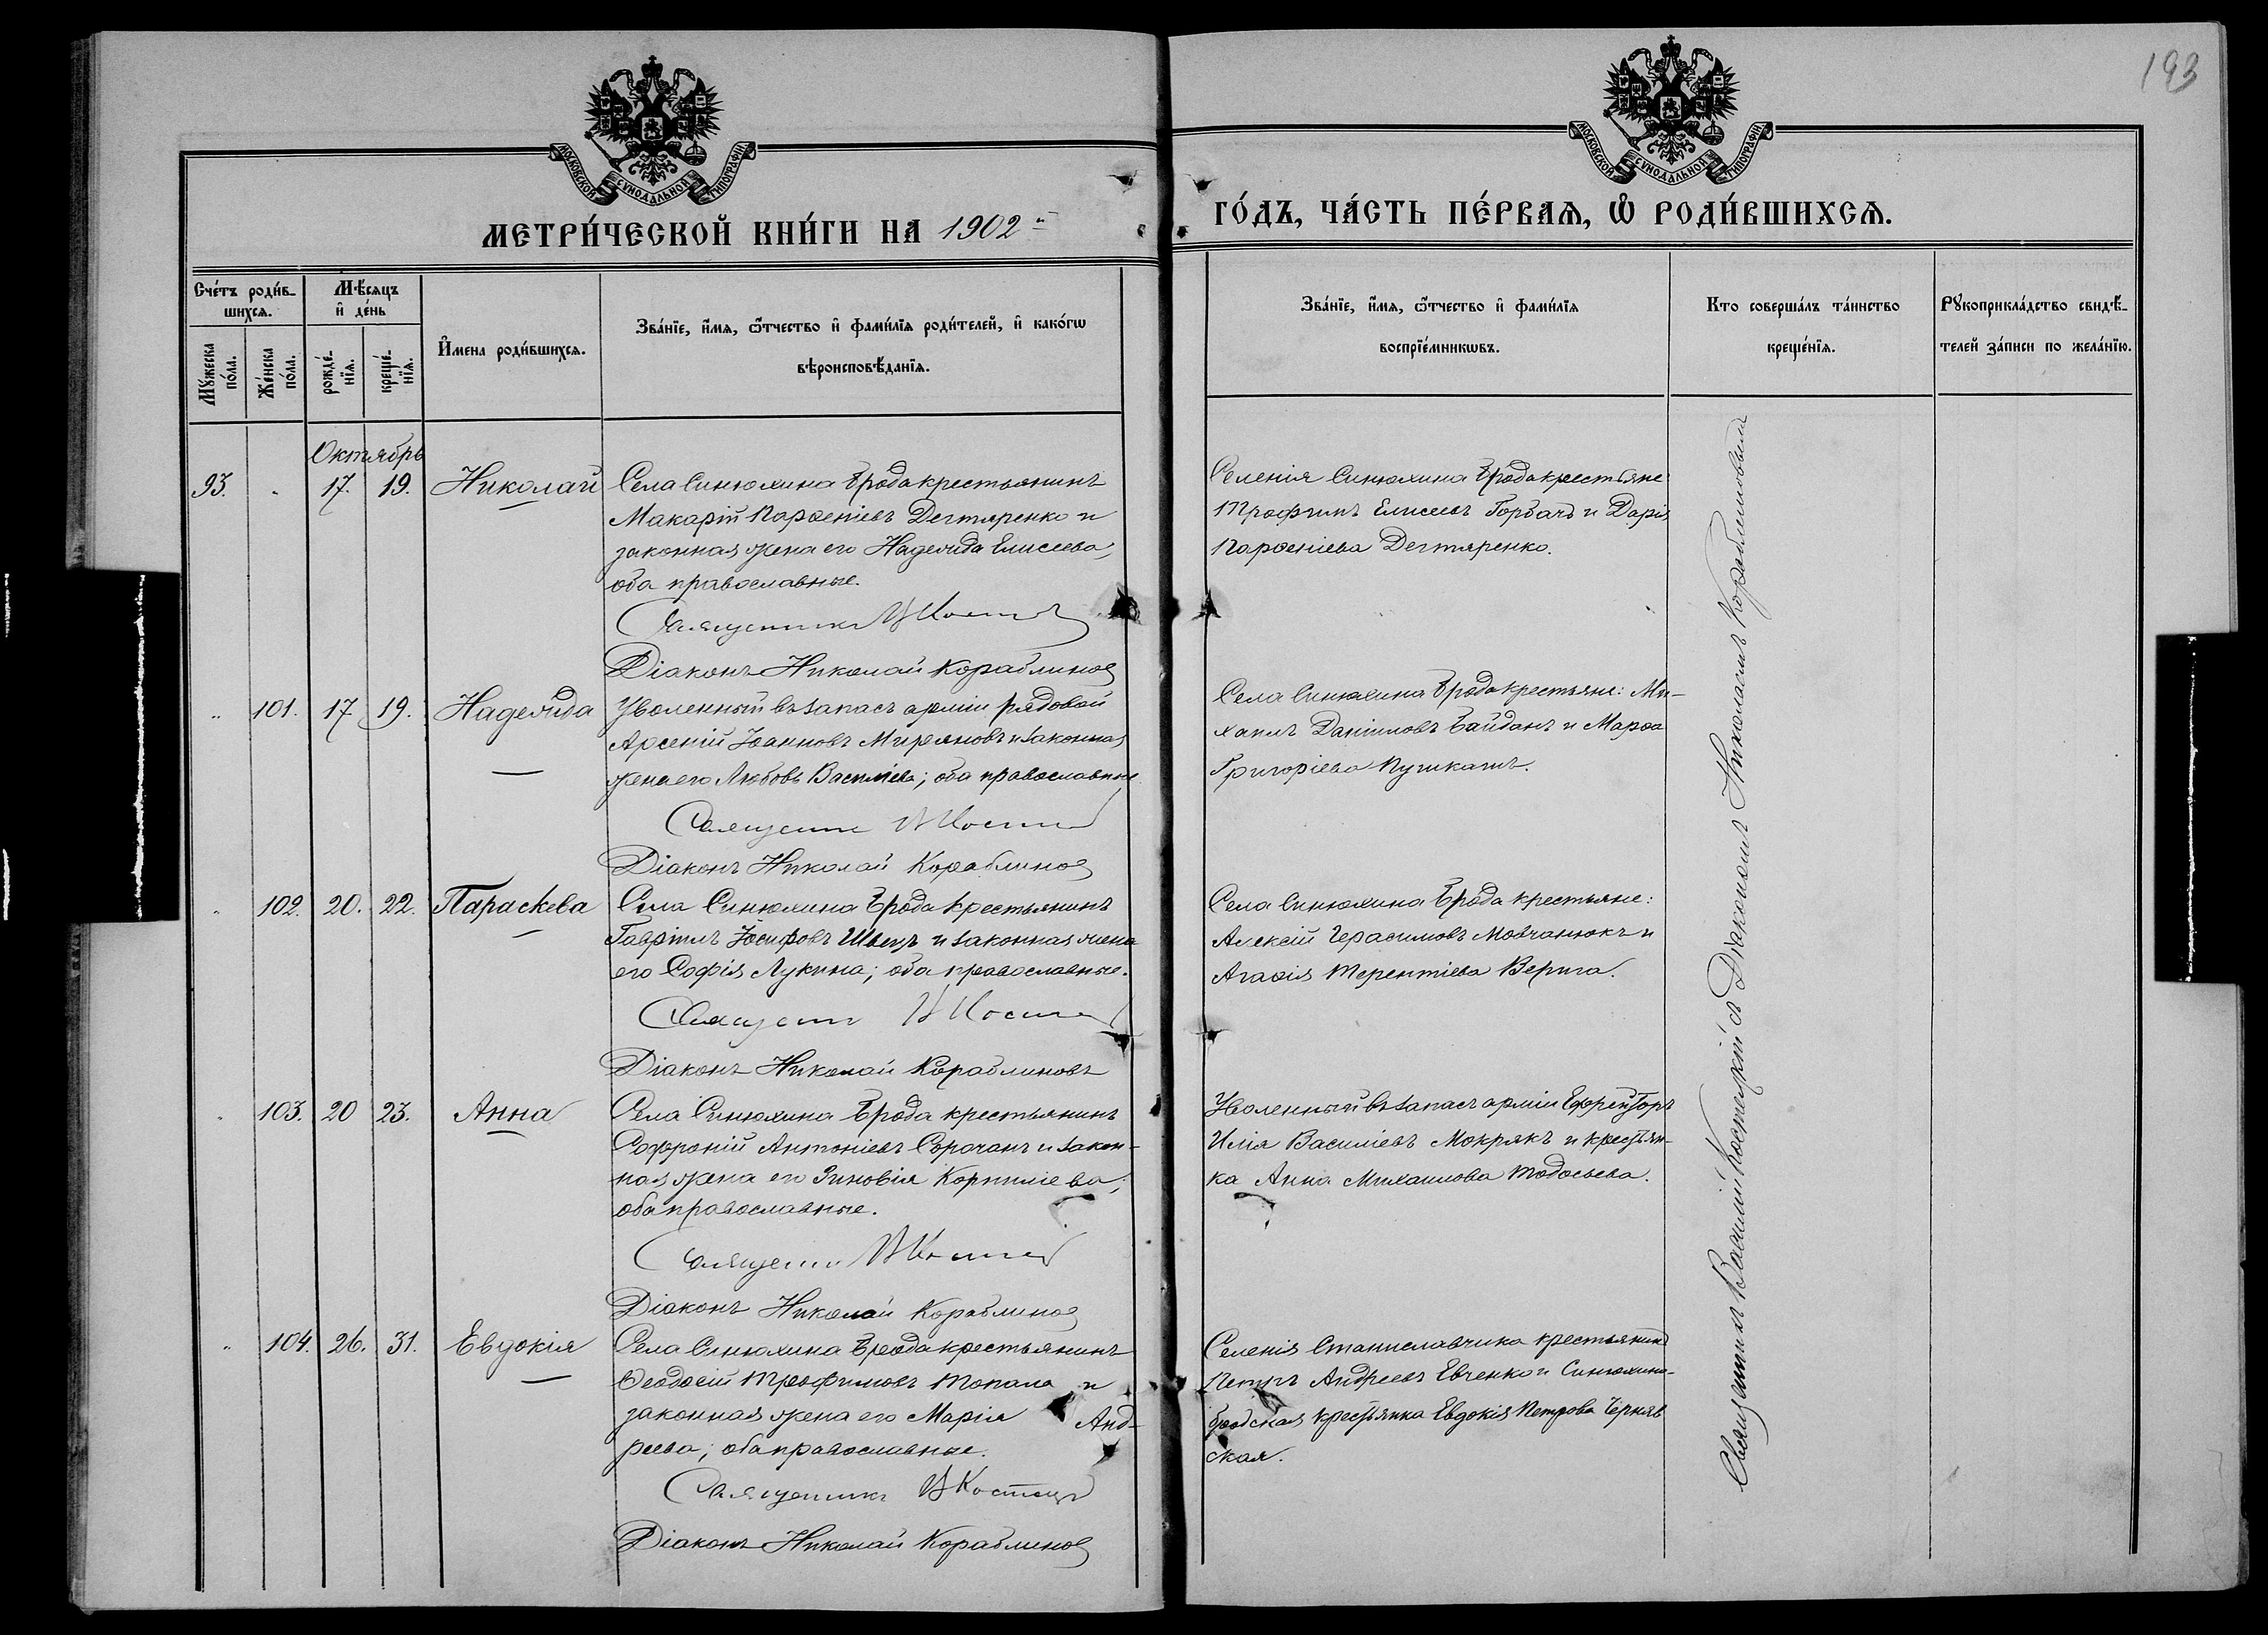 193
МОСКОВСКОЙ СУНОДАЛЬНОЙ ТИПОГРАФІИ
МОСКОВСКОЙ СУНОДАЛЬНОЙ ТИПОГРАФІИ
МЕТРИ́ЧЕСКОЙ КНИ́ГИ НА 1902 й
ГО́ДЪ, ЧА́СТЬ ПЕ́РВАѦ, Ѡ РОДИ́ВШИХСѦ.
Сче́тъ роди́в-
шихсѧ.
Мꙋ́жеска
по́ла.
Же́нска
по́ла.
Мѣ́сѧцъ
и де́нь
рожде́-
нїѧ.
креще́-
нїѧ.
И́мена роди́вшихсѧ.
Зва́нїе, и́мѧ, ѻ́тчество и фами́лїѧ роди́телей, и како́гѡ
вѣроисповѣ́данїѧ.
Зва́нїе, и́мѧ, ѻ́тчество и фами́лїѧ
воспрїе́мникѡвъ.
Кто соверша́лъ та́инство
креще́нїѧ.
Рꙋкоприкла́дство свидѣ́-
телей за́писи по жела́нїю.
Октябрь
93. 17. 19. Николай
Села Синюхина Брода крестьянинъ
Макарій Парѳеніевъ Дегтяренко и
законная жена его Надежда Елисеева,
оба православные.
Священникъ В
Діаконъ Николай Кораблиновъ
Селенія Синюхина Брода крестьяне
Трофимъ Елисеевъ Горбачъ и Дарія
Парѳеніева Дегтяренко.
101. 17 19. Надежда
Уволенный въ запасъ арміи рядовой
Арсеній Іоанновъ Миряновъ и законная
жена его Любовь Василіева; оба православные
Священникъ В
Діаконъ Николай Кораблиновъ
Села Синюхина Брода крестьяне: Ми-
хаилъ Даніиловъ Байданъ и Марѳа
Григоріева
102. 20. 22. Параскева
Села Синюхина Брода крестьянинъ
Гавріилъ Іосифовъ Швецъ и законная жена
его Софія Лукина; оба православные.
Священникъ В
Діаконъ Николай Кораблиновъ
Села Синюхина Брода крестьяне:
Алексій Герасимовъ Мовчанюкъ и
Агаѳія Терентіева Верига.
103. 20 23. Анна
Села Синюхина Брода крестьянинъ
Софроній Антоніевъ Сорочанъ и закон-
ная жена его Зиновія Корниліева;
оба православные.
Священникъ В
Діаконъ Николай Кораблиновъ
Уволенный въ запасъ арміи Ефрейторъ
Илія Василіевъ Мокрякъ и крестьян-
ка Анна Михаилова Тодосьева.
104. 26. 31. Евдокія
Села Синюхина Брода крестьянинъ
Ѳеодосій Трофимовъ Топала и
законная жена его Марія Анд-
реева; оба православные.
Священникъ В Костецкій
Діаконъ Николай Кораблиновъ
Селенія Станиславчика крестьянинъ
Петръ Андреевъ Евченко и Синюхино-
бродская крестьянка Евдокія Петрова Черняв
ская.
Священникъ Василій Костецкій съ Діакономъ Николаемъ Кораблиновымъ